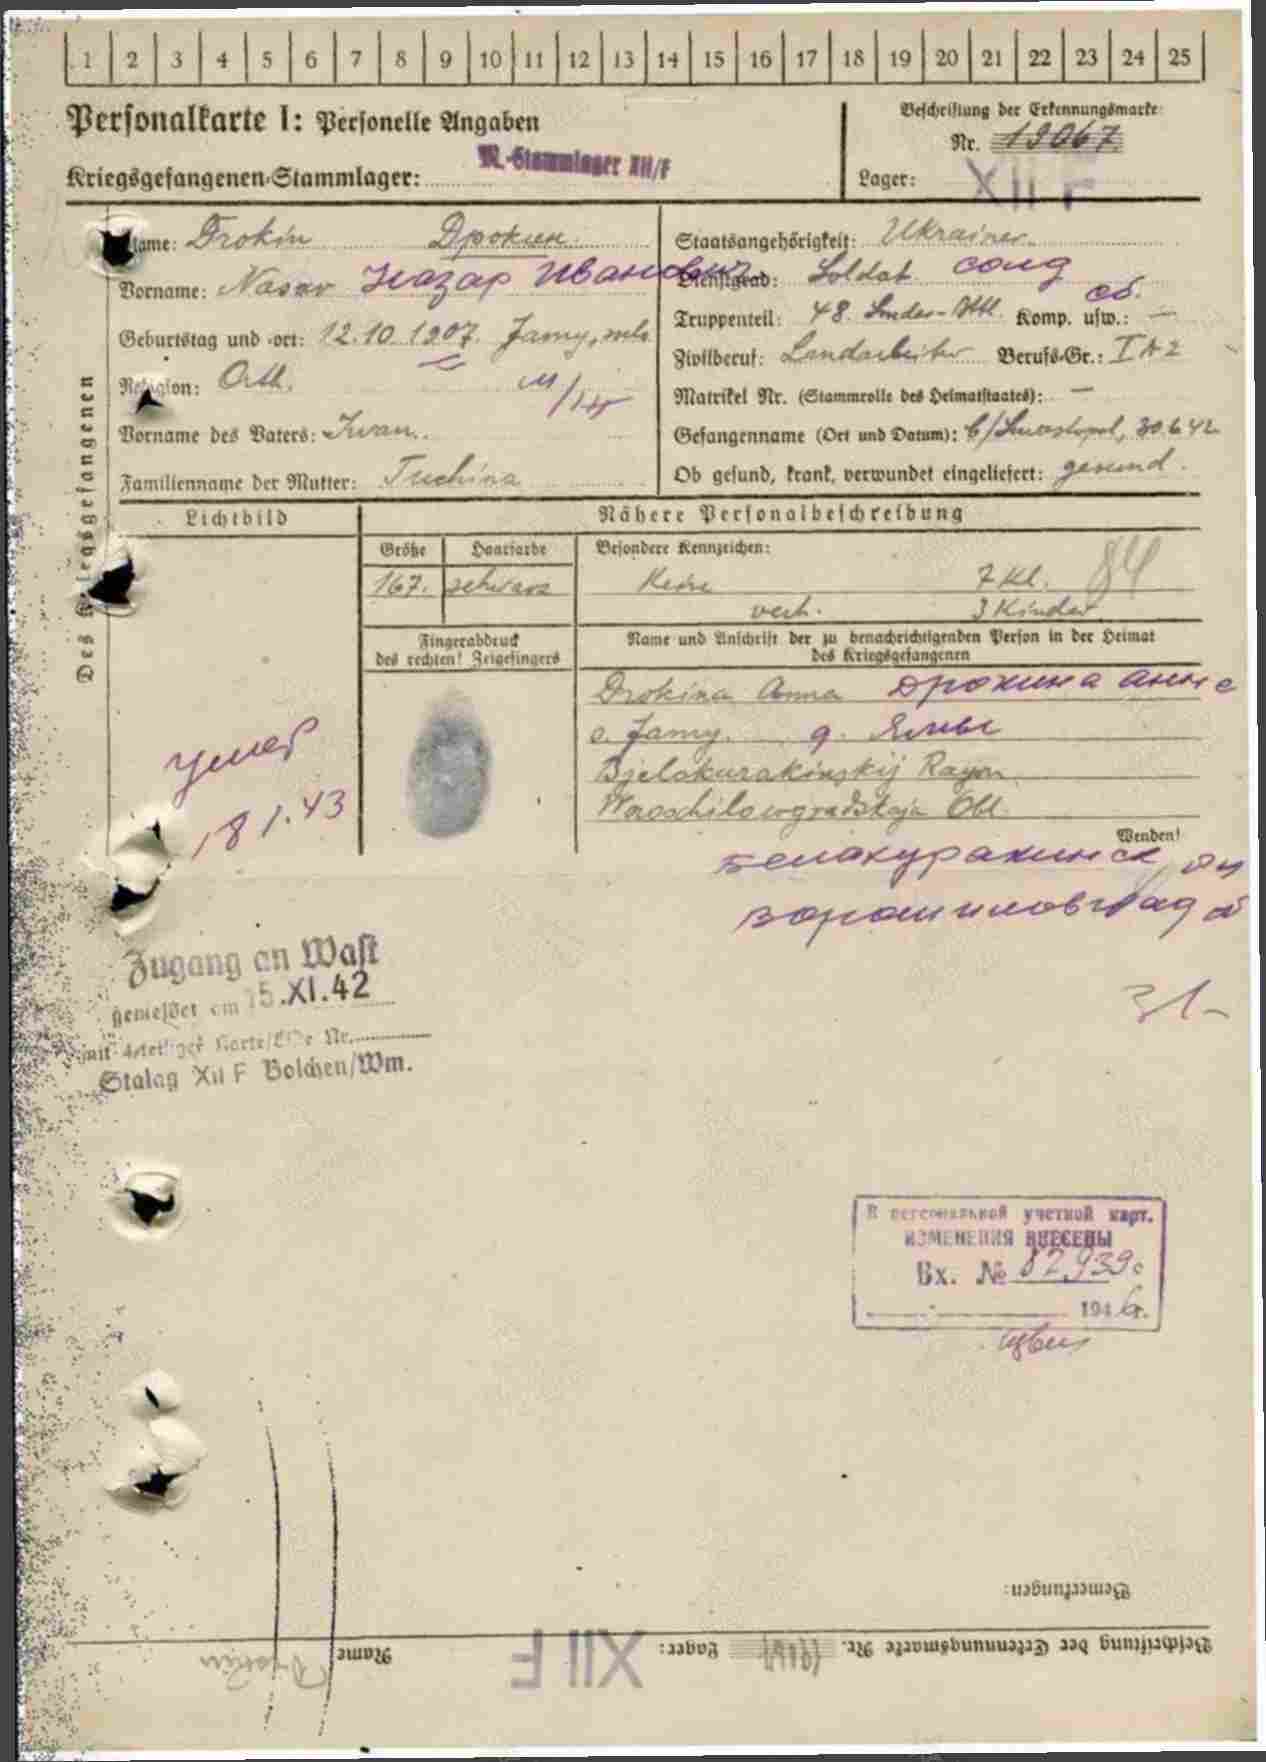 1 2 3 4 5 6 7 8 9 10 11 12 13 14 15 16 17 18 19 20 21 22 23 24 25
Personalkarte I: Personelle Angaben
Beschriftung der Erkennungsmarke
Nr. 19067.
Kriegsgefangenen-Stammlager: M.-Stammlager XII/F
Lager: XII F
Des Kriegsgefangenen
Name: Drokin Дрокин
Staatsangehörigkeit: Ukrainer
Vorname: Nasar Назар Иванович
Dienstgrad: Soldat солд
Geburtstag und -ort: 12.10.1907. Jamy,
Truppenteil: 48. Komp. usw.: —
сб.
Zivilberuf: Landarbeiter Berufs-Gr.: I A 2
Religion: Orth.
Matrikel Nr. (Stammrolle des Heimatstaates): —
Vorname des Vaters: Iwan.
Gefangenname (Ort und Datum): 30.6.42
Familienname der Mutter: Tuchina
Ob gesund, krank, verwundet eingeliefert: gesund.
Lichtbild
Nähere Personalbeschreibung
Größe Haarfarbe Besondere Kennzeichen:
167. schwarz Keine 7 Kl. 84
verh. 3 Kinder
Fingerabdruck
des rechten! Zeigefingers
Name und Anschrift der zu benachrichtigenden Person in der Heimat
des Kriegsgefangenen
Drokina Anna Дрокина Анна
o. Jamy. д. Ямы
Bjelokurakinskij Rayon
Woroschilowgradskaja Obl.
Wenden!
умер
18 1.43
Белокуракинск
Ворошиловград
Zugang an Wast
gemeldet am 15.XI.42
mit Karte/Liste Nr.
Stalag XII F Bolchen/Wm.
В персональной учетной карт.
ИЗМЕНЕНИЯ ВНЕСЕНЫ
Вх. № 82939с
1946г.
Bemerkungen:
Beschriftung der Erkennungsmarke Nr. Lager: XII F Name Drokin